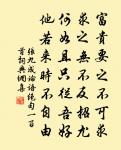 富貴要之不可求
求之無不反招尤
何如且只從吾好
他若來時不自由
張九成論語絕句一百
首詞典網集